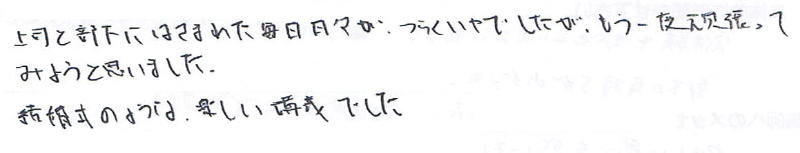 上司と部下にはさまれた毎日日々が、つらくいやでしたが、もう一度頑張って
みようと思いました。
結婚式のような、楽しい講義でした